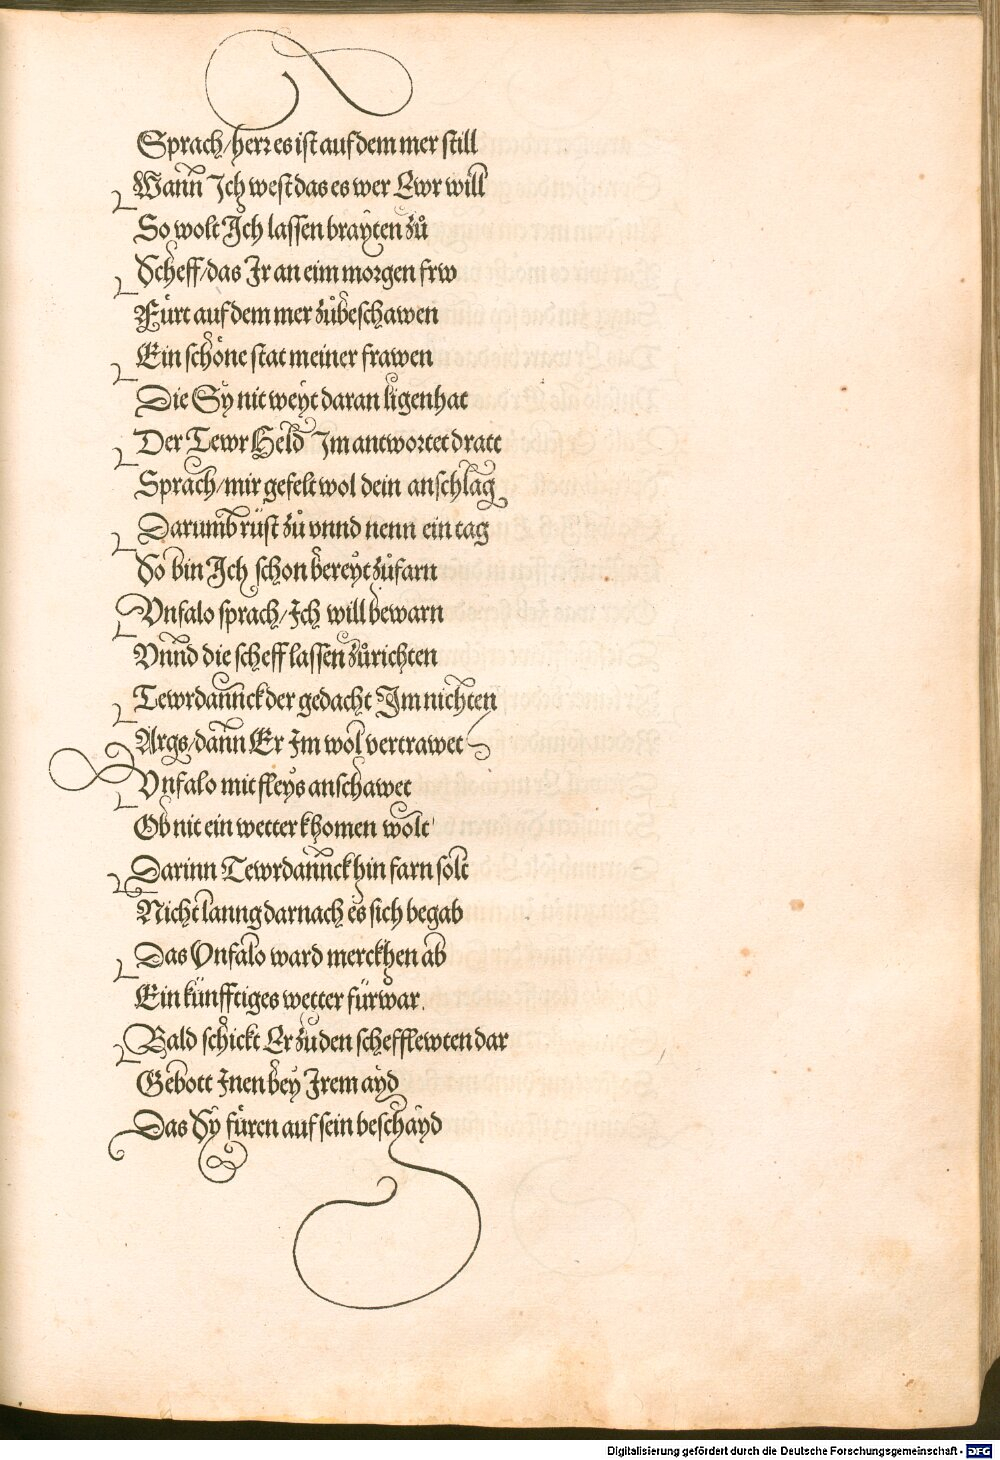 Sprach/herꝛ es ist auf dem mer still
Wann Jch west das es wer Ewr will
So wolt Jch lassen brayten zů
Scheff/das Jr an eim morgen frw
Fürt auf dem mer zů beschawen
Ein schöne stat meiner frawen
Die Sy nit weyt daran ligen hat
Der Tewr Held Jm antwortet dratt
Sprach/mir gefelt wol dein anschlag
Darumb rüst zů vnnd nenn ein tag
So bin Jch schon bereyt zůfarn
Vnfalo sprach/Jch will bewarn
Vnnd die scheff lassen zůrichten
Tewrdannck der gedacht Jm nichten
Args/dann Er Jm wol vertrawet
Vnfalo mit fleys anschawet
Ob nit ein wetter khomen wolt
Darinn Tewrdannck hin farn solt
Nicht lanng darnach es sich begab
Das Vnfalo ward merckhen ab
Ein künfftiges wetter fürwar.
Bald schickt Er zu den schefflewten dar
Gebott Jnen bey Jrem ayd
Das Sy füren auf sein beschayd
Digitalisierung gefördert durch die Deutsche Forschungsgemeinschaft - DFG